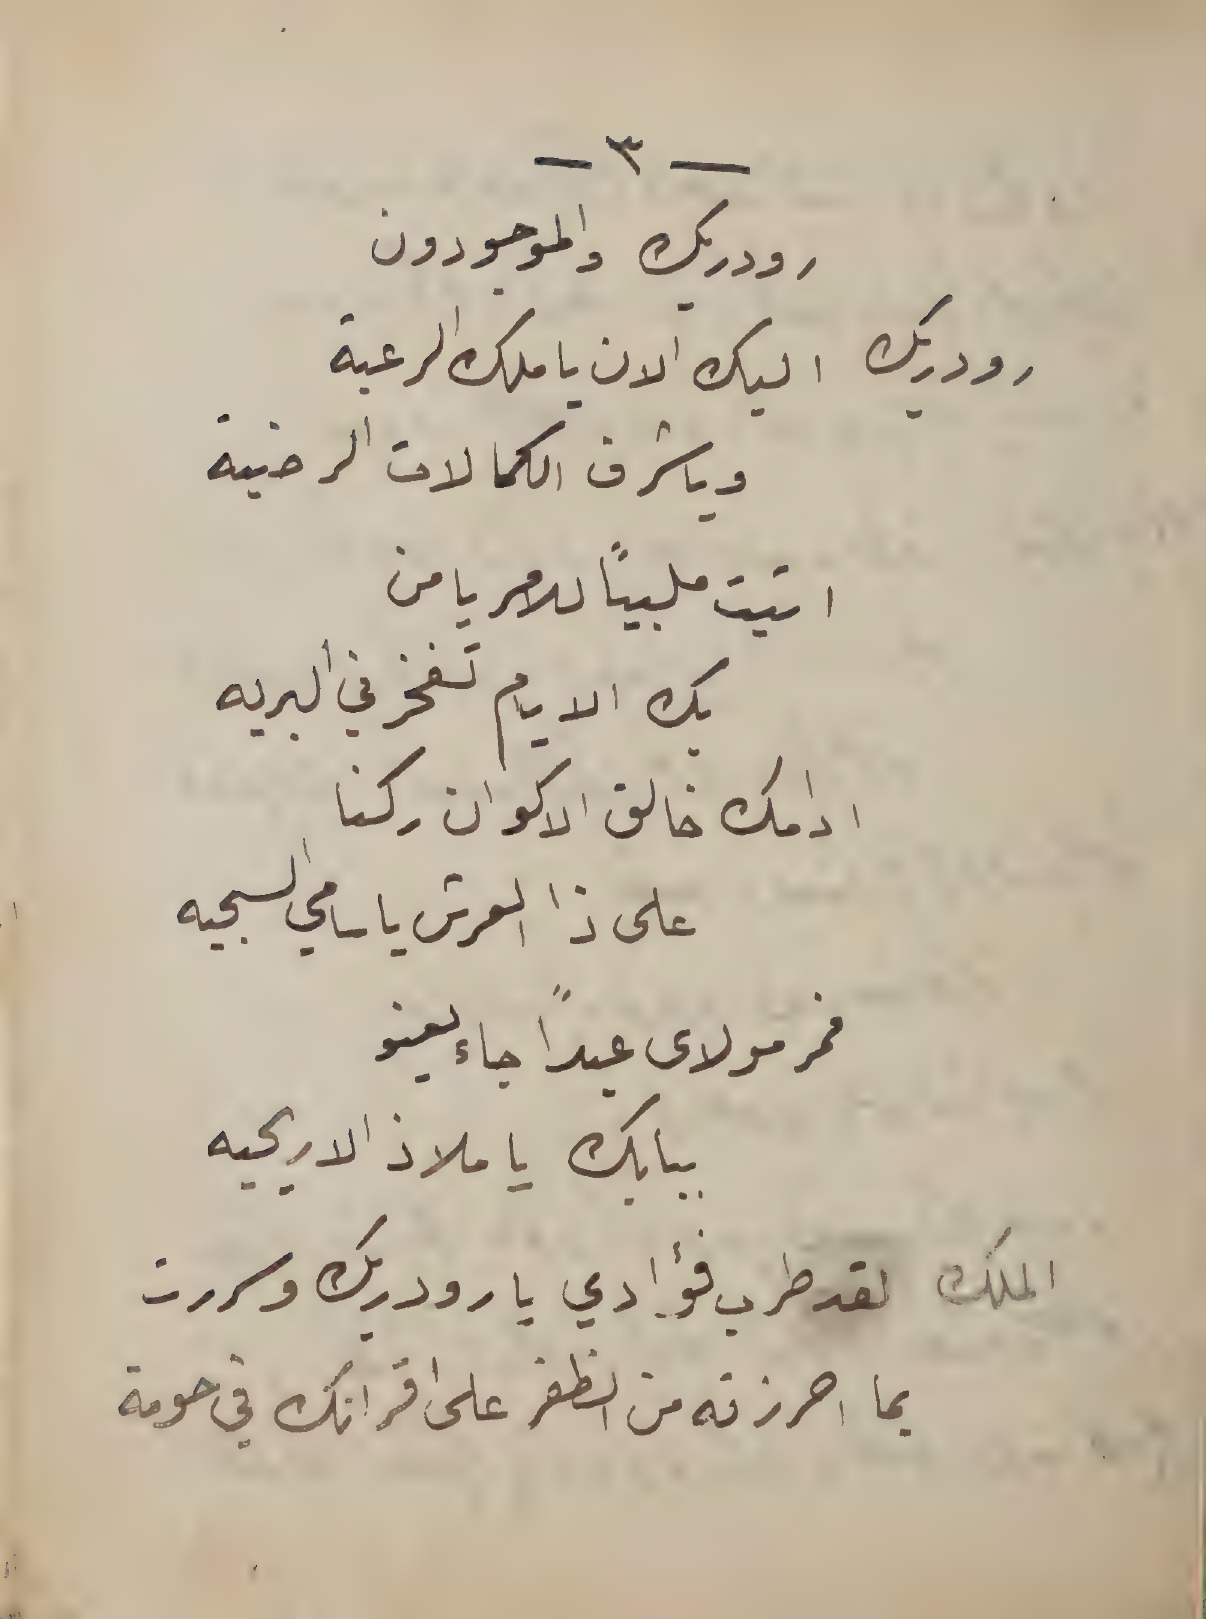 — ٣ —
رودريك والموجودون
رودريك اليك الان يا ملك الرعية
ويا شرف الكمالات الرضية
اتيت ملبيًا للامر يا من
بك الايام تفخر في البريه
ادامك خالق الاكوان ركنا
على ذا العرش يا سامي السجيه
فمر مولاى عبدًا جاء يعنو
ببابك يا ملاذ الاريحيه
الملك لقد طرب فؤادي يا رودريك وسررت
بما احرزته من الظفر على اقرانك في حومة